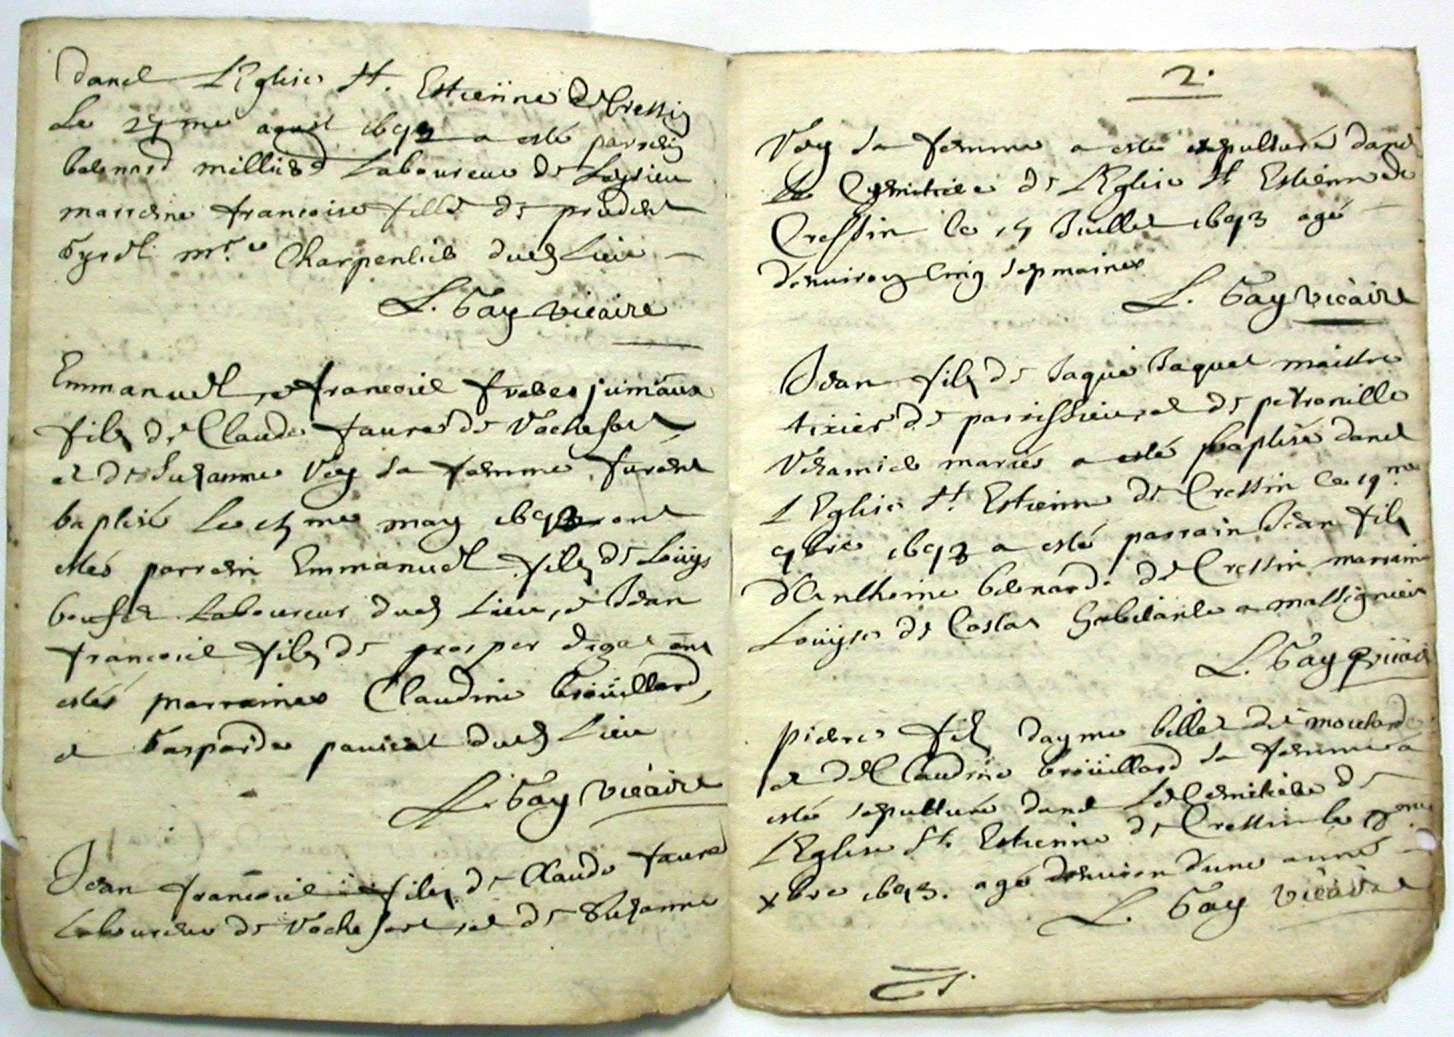 dans L'Eglise St. Estienne de Cressin
Le 27me aoust 1692 a esté parrein
bernard millied Laboureur de
marrene francoise fille de prudent
mre Charpentier dud Lieu
L. Gay vicaire
Emmanuel et francois freres jumaux
fils de Claude faure de Vachefort
et de Suzanne Vey sa femme furent
baptisé le me may 1693 ont
estés parrein Emmanuel fils de Loüys
Laboureur dud Lieu, et Jean
francois fils de prosper ont
estés marraines Claudine broüillard
et Gasparde dud Lieu
L. Gay vicaire
Jean francois fils de Claude faure
Laboureur de Vachefort et de Suzanne
2.
Vey sa femme a esté sepulturé dans
le Cemitiere de L'Eglise St Estienne de
Cressin le 15 Juillet 1693 agé
d'environ cinq sepmaines
L. Gay vicaire
Jean fils de Jaque Jaquet maistre
tixier de parissieu et de petronille
mariés a esté baptisé dans
L'Eglise St. Estienne de Cressin le 19me
9bre 1693 a esté parrain Jean fils
d'Anthoine bernard de Cressin marraine
Loüyse de Costaz habitante a massignieu
L. Gay vicaire
pierre fils dayme billiet de
et de Claudine broüillard sa femme a
esté sepulturé dans Le Cemitiere de
L'Eglise St. Estienne de Cressin le
xbre 1693. agé denviron d'une année
L. Gay vicaire